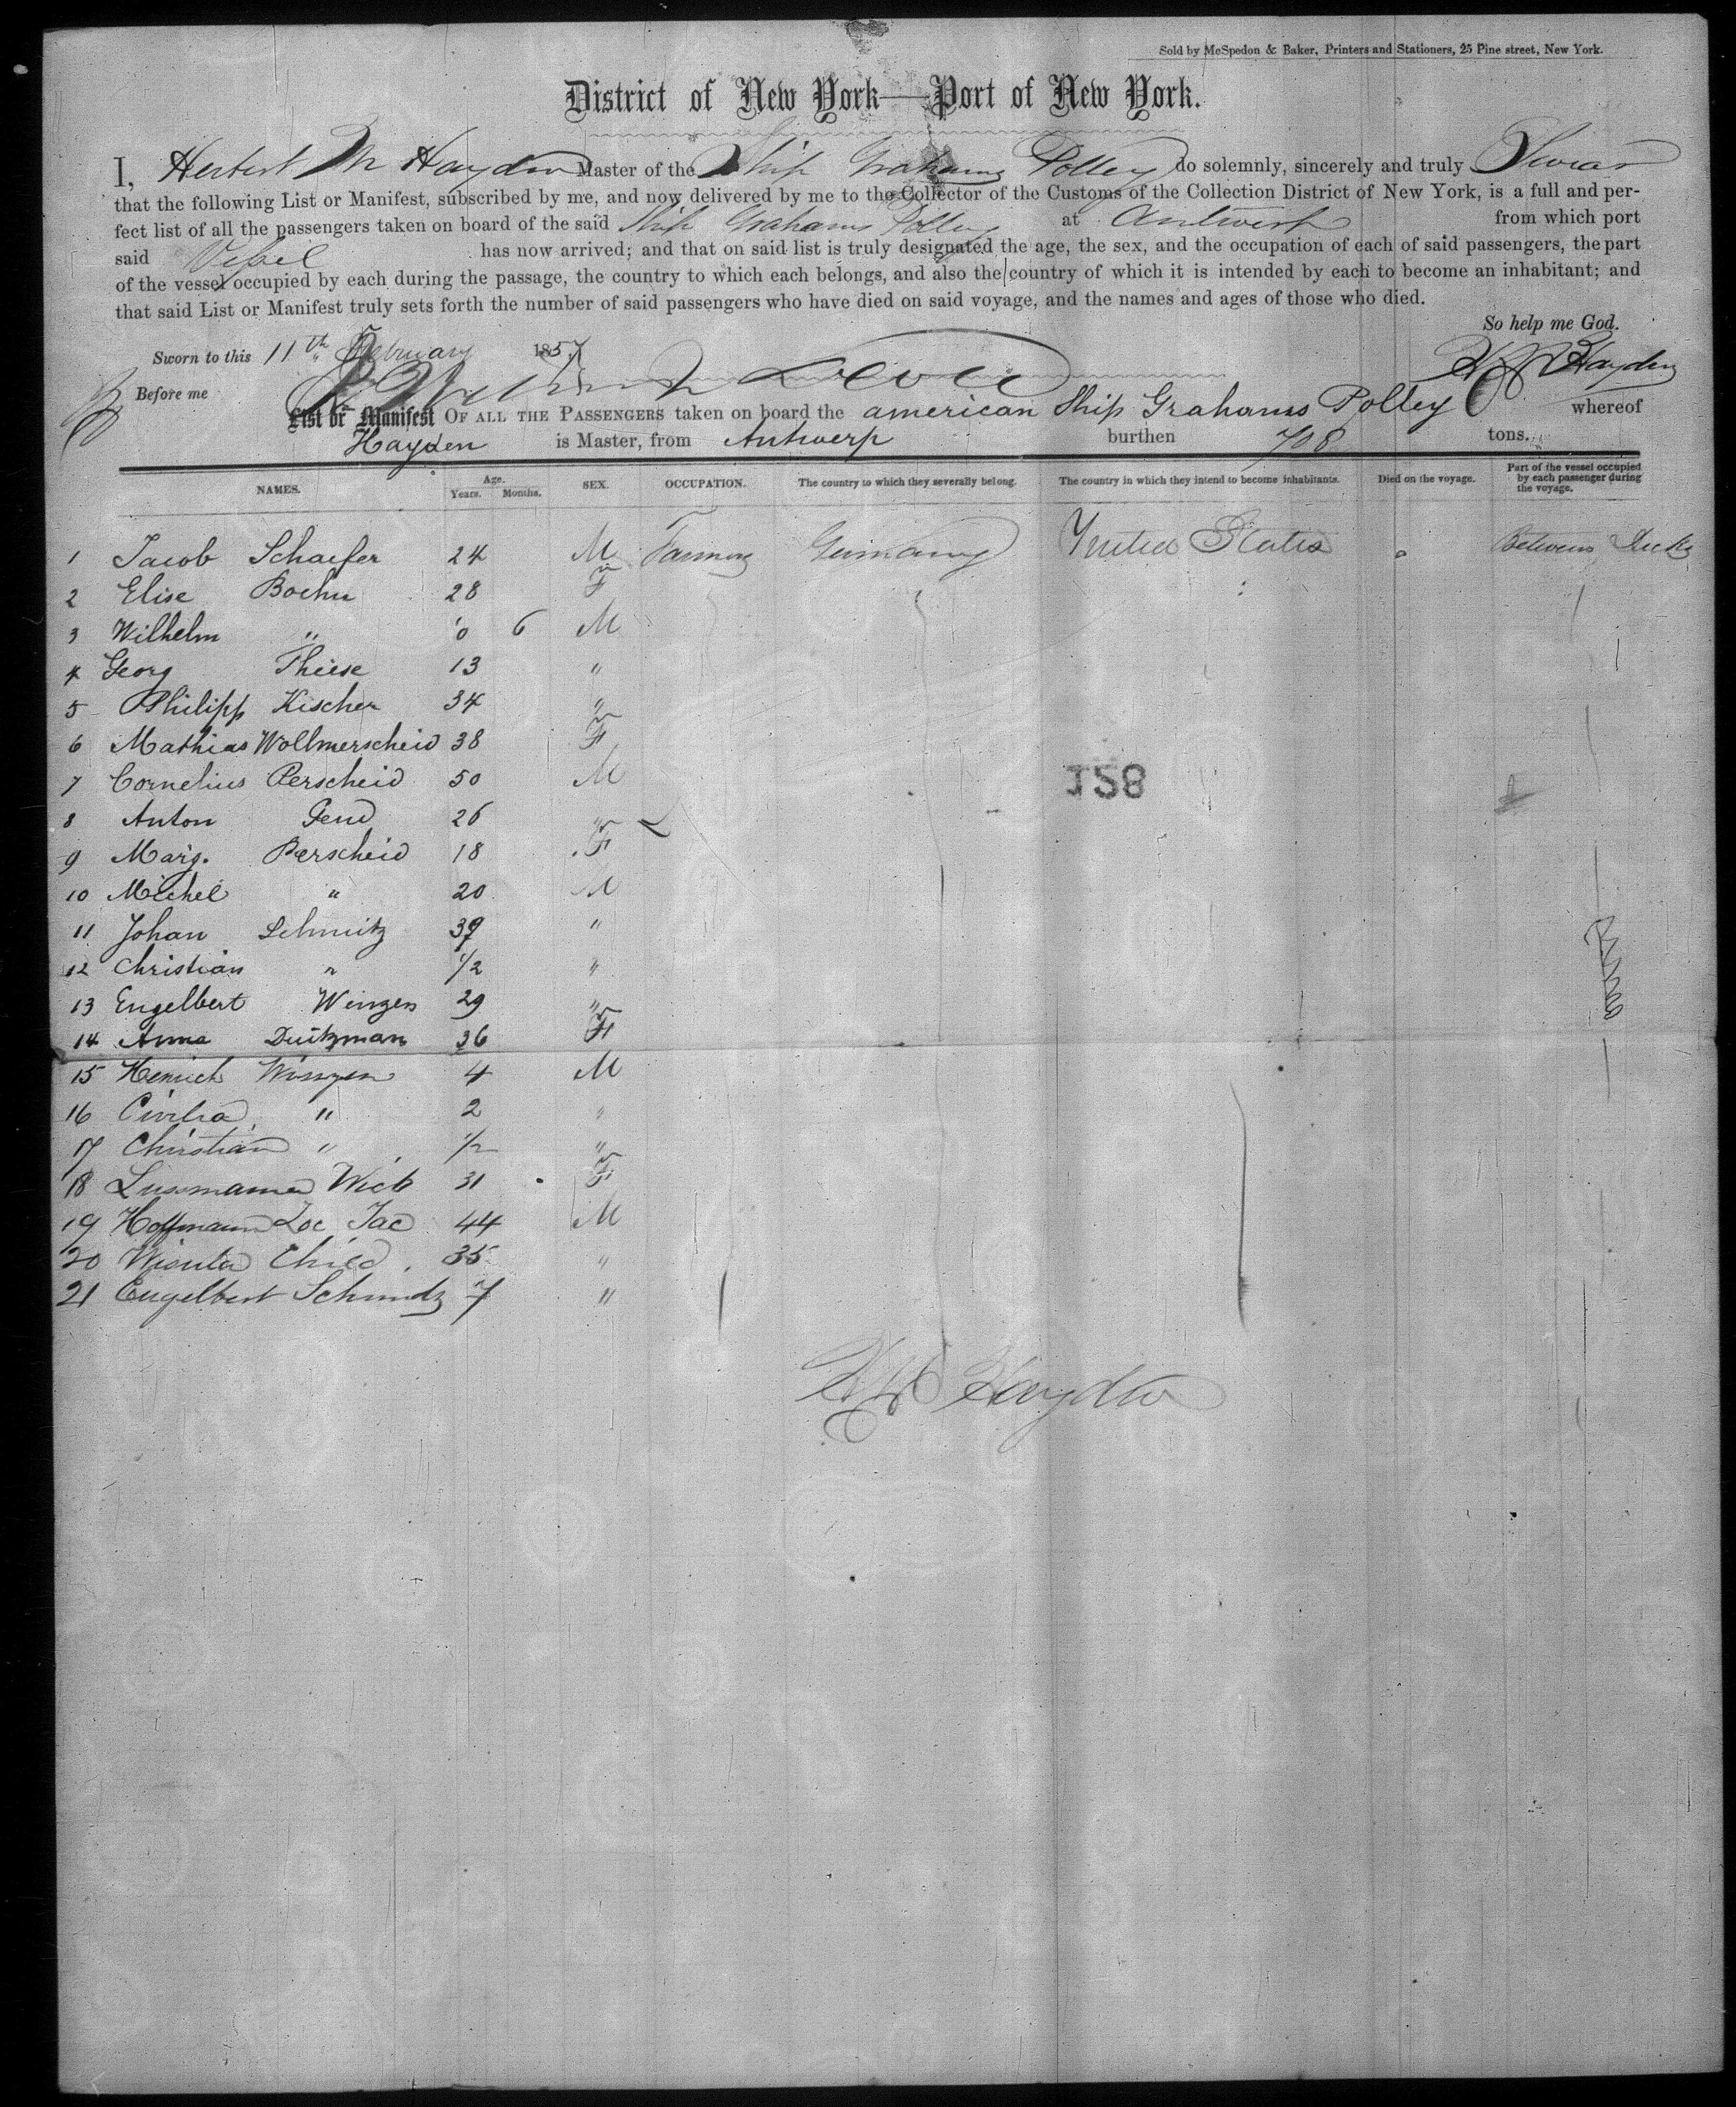 Sold by McSpedon & Baker, Printers and Stationers, 25 Pine street, New York.
District of New York—Port of New York.
I, Herbert M Hayden Master of the Ship Grahams Polley do solemnly, sincerely and truly Swear
that the following List or Manifest, subscribed by me, and now delivered by me to the Collector of the Customs of the Collection District of New York, is a full and per-
fect list of all the passengers taken on board of the said Ship Grahams Polley at Antwerp from which port
said Vessel has now arrived; and that on said list is truly designated the age, the sex, and the occupation of each of said passengers, the part
of the vessel occupied by each during the passage, the country to which each belongs, and also the country of which it is intended by each to become an inhabitant; and
that said List or Manifest truly sets forth the number of said passengers who have died on said voyage, and the names and ages of those who died.
So help me God.
Sworn to this 11th February 1857
H M Hayden
Before me
List or Manifest OF ALL THE PASSENGERS taken on board the american Ship Grahams Polley whereof
Hayden is Master, from Antwerp burthen 708 tons.
NAMES. Age. Years. Months. SEX. OCCUPATION. The country to which they severally belong. The country in which they intend to become inhabitants. Died on the voyage. Part of the vessel occupied by each passenger during the voyage.
1 Jacob Schaefer 24 M Farmer Germany United States o Between Decks
2 Elise Boehn 28 F
3 Wilhelm " 0 6 M
4 Georg Thiese 13 "
5 Philipp Kischer 34 "
6 Mathias Wollmerscheid 38 F
7 Cornelius Perscheid 50 M
128
8 Anton Fend 26 "
9 Marg. Perscheid 18 F
10 Michel " 20 M
11 Johan Schmitz 39 "
12 Christian " 1/2 "
13 Engelbert Winzen 29 "
14 Anna Duitzman 36 F
15 Heinrich Winzen 4 M
16 " 2 "
17 Christian " 1/2 "
18 31 F
19 Hoffmann Jac 44 M
20 35 "
21 Engelbert Schmitz 7 "
H M Hayden